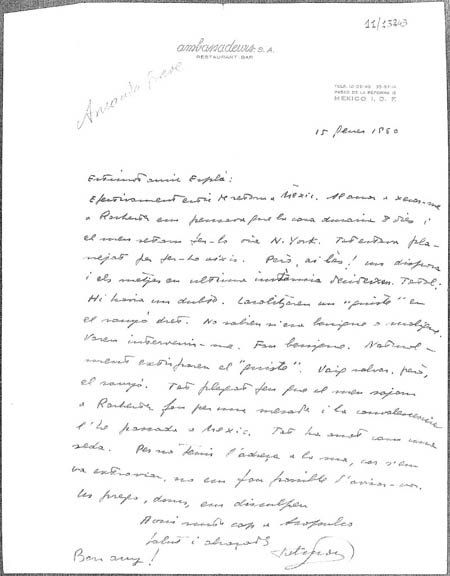 11/13243
ambassadeurs, S.A.
RESTAURANT-BAR
PASEO DE LA REFORMA
MEXICO 1, D. F.
15 Gener 1960
Estimat amic Esplá:
Efectivament estic de retorn a Mèxic. Al anar a
a Rochester em pensava que la cosa duraria 8 dies i
el meu retorn fer-lo via N. York. Tot estava pla-
nejat per fer-ho així. Però, ai las! un disposa
i els metjes en ultima instància decideixen. Total:
Hi havia un dubte. Localitzaren un "quiste" en
el ronyó dret. No sabien si era benigne o maligne.
Varen intervenir-me. Fou benigne. Natural-
ment extirparen el "quiste". Vaig salvar, però,
el ronyó. Tot plegat feu que el meu sojorn
a Rochester fou per una mesada i la convalescència
l'he passada a Mèxic. Tot ha anat com una
seda. Per no tenir l'adreça a la mà, car s'em
va extraviar, no em fou possible l'avisar-vos.
Us prego, doncs, em disculpeu
Avui mateix cap a Acapulco
Salut i abraçades
Bon any!